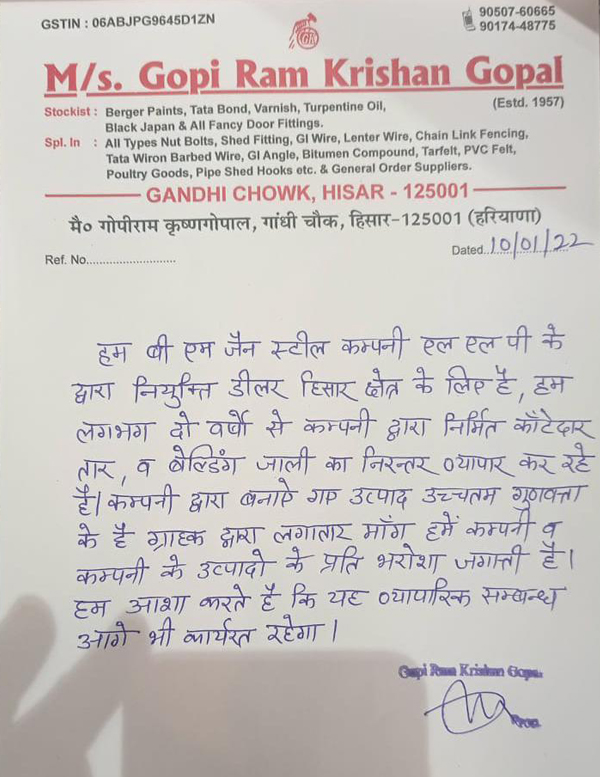 GSTIN : 06ABJPG9645D1ZN
90507-60665
90174-48775
M/s. Gopi Ram Krishan Gopal
(Estd. 1957)
Stockist : Berger Paints, Tata Bond, Varnish, Turpentine Oil,
Black Japan & All Fancy Door Fittings.
Spl. In : All Types Nut Bolts, Shed Fitting, GI Wire, Lenter Wire, Chain Link Fencing,
Tata Wiron Barbed Wire, GI Angle, Bitumen Compound, Tarfelt, PVC Felt,
Poultry Goods, Pipe Shed Hooks etc. & General Order Suppliers.
GANDHI CHOWK, HISAR - 125001
मै० गोपीराम कृष्णगोपाल, गांधी चौक, हिसार-125001 (हरियाणा)
Ref. No..........................
Dated..10/01/22
हम बी एम जैन स्टील कम्पनी एल एल पी के
द्वारा नियुक्ति डीलर हिसार क्षेत्र के लिए है, हम
लगभग दो वर्षो से कम्पनी द्वारा निर्मित काँटेदार
तार, व बेल्डिंग जाली का निरन्तर व्यापार कर रहे
है। कम्पनी द्वारा बनाऐ गए उत्पाद उच्चतम गुणवत्ता
के है ग्राहक द्वारा लगातार माँग हमें कम्पनी व
कम्पनी के उत्पादो के प्रति भरोशा जगाती है।
हम आशा करते है कि यह व्यापारिक सम्बन्ध
आगे भी कार्यरत रहेगा।
Gopi Ram Krishan Gopal